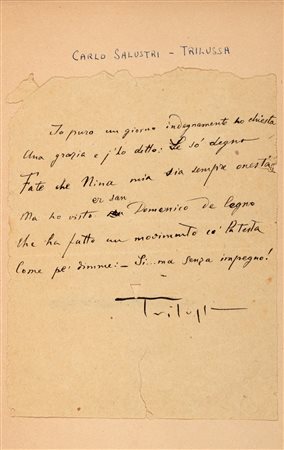 CARLO SALUSTRI - TRILUSSA
Io puro un giorno indegnamente ho chiesta
Una grazia e j'ho ditto: Se só degno
Fate che Nina mia sia sempre onesta
er san
Ma ho visto Domenico de legno
Che ha fatto un movimento co' la testa
Come pe' dimme: - Si... ma senza impegno!
Trilussa